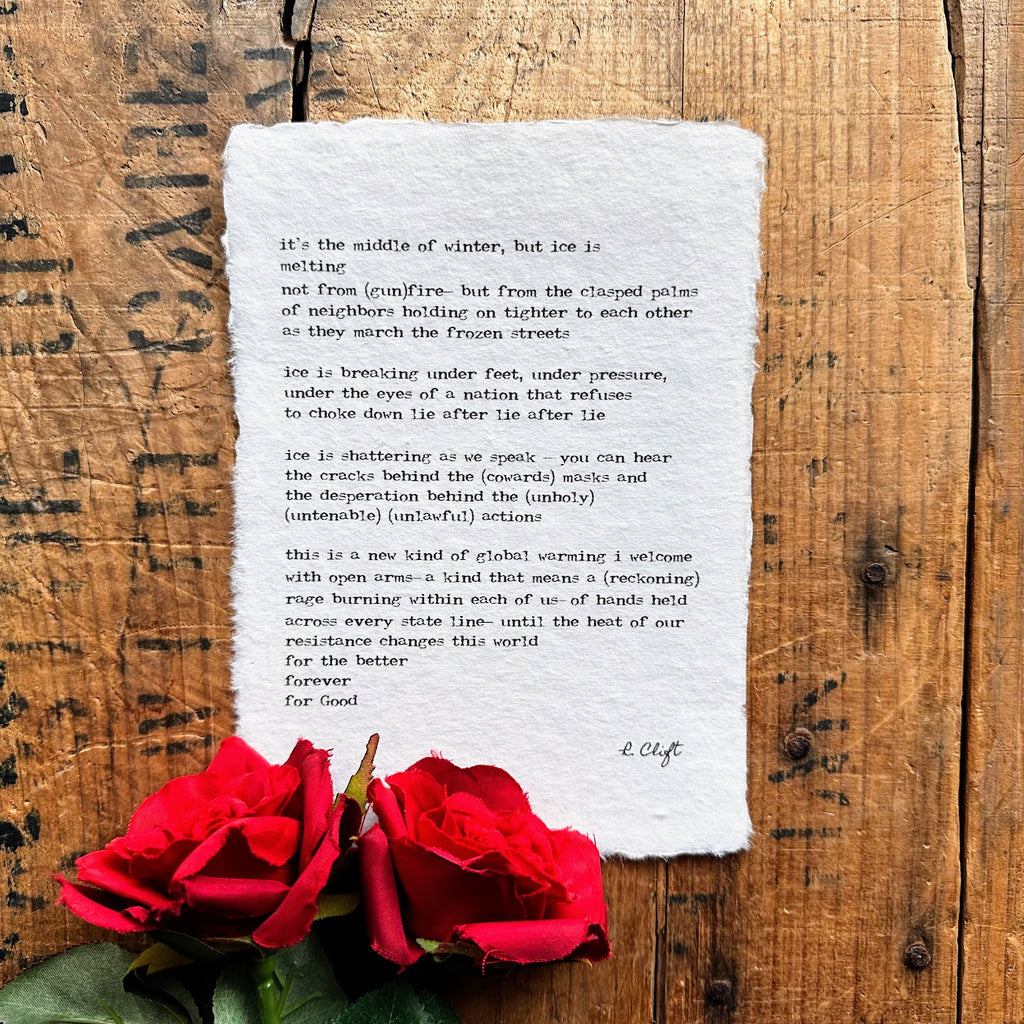 it's the middle of winter, but ice is
melting
not from (gun)fire— but from the clasped palms
of neighbors holding on tighter to each other
as they march the frozen streets
ice is breaking under feet, under pressure,
under the eyes of a nation that refuses
to choke down lie after lie after lie
ice is shattering as we speak — you can hear
the cracks behind the (cowards) masks and
the desperation behind the (unholy)
(untenable) (unlawful) actions
this is a new kind of global warming i welcome
with open arms—a kind that means a (reckoning)
rage burning within each of us—of hands held
across every state line— until the heat of our
resistance changes this world
for the better
forever
for Good
R. Clift